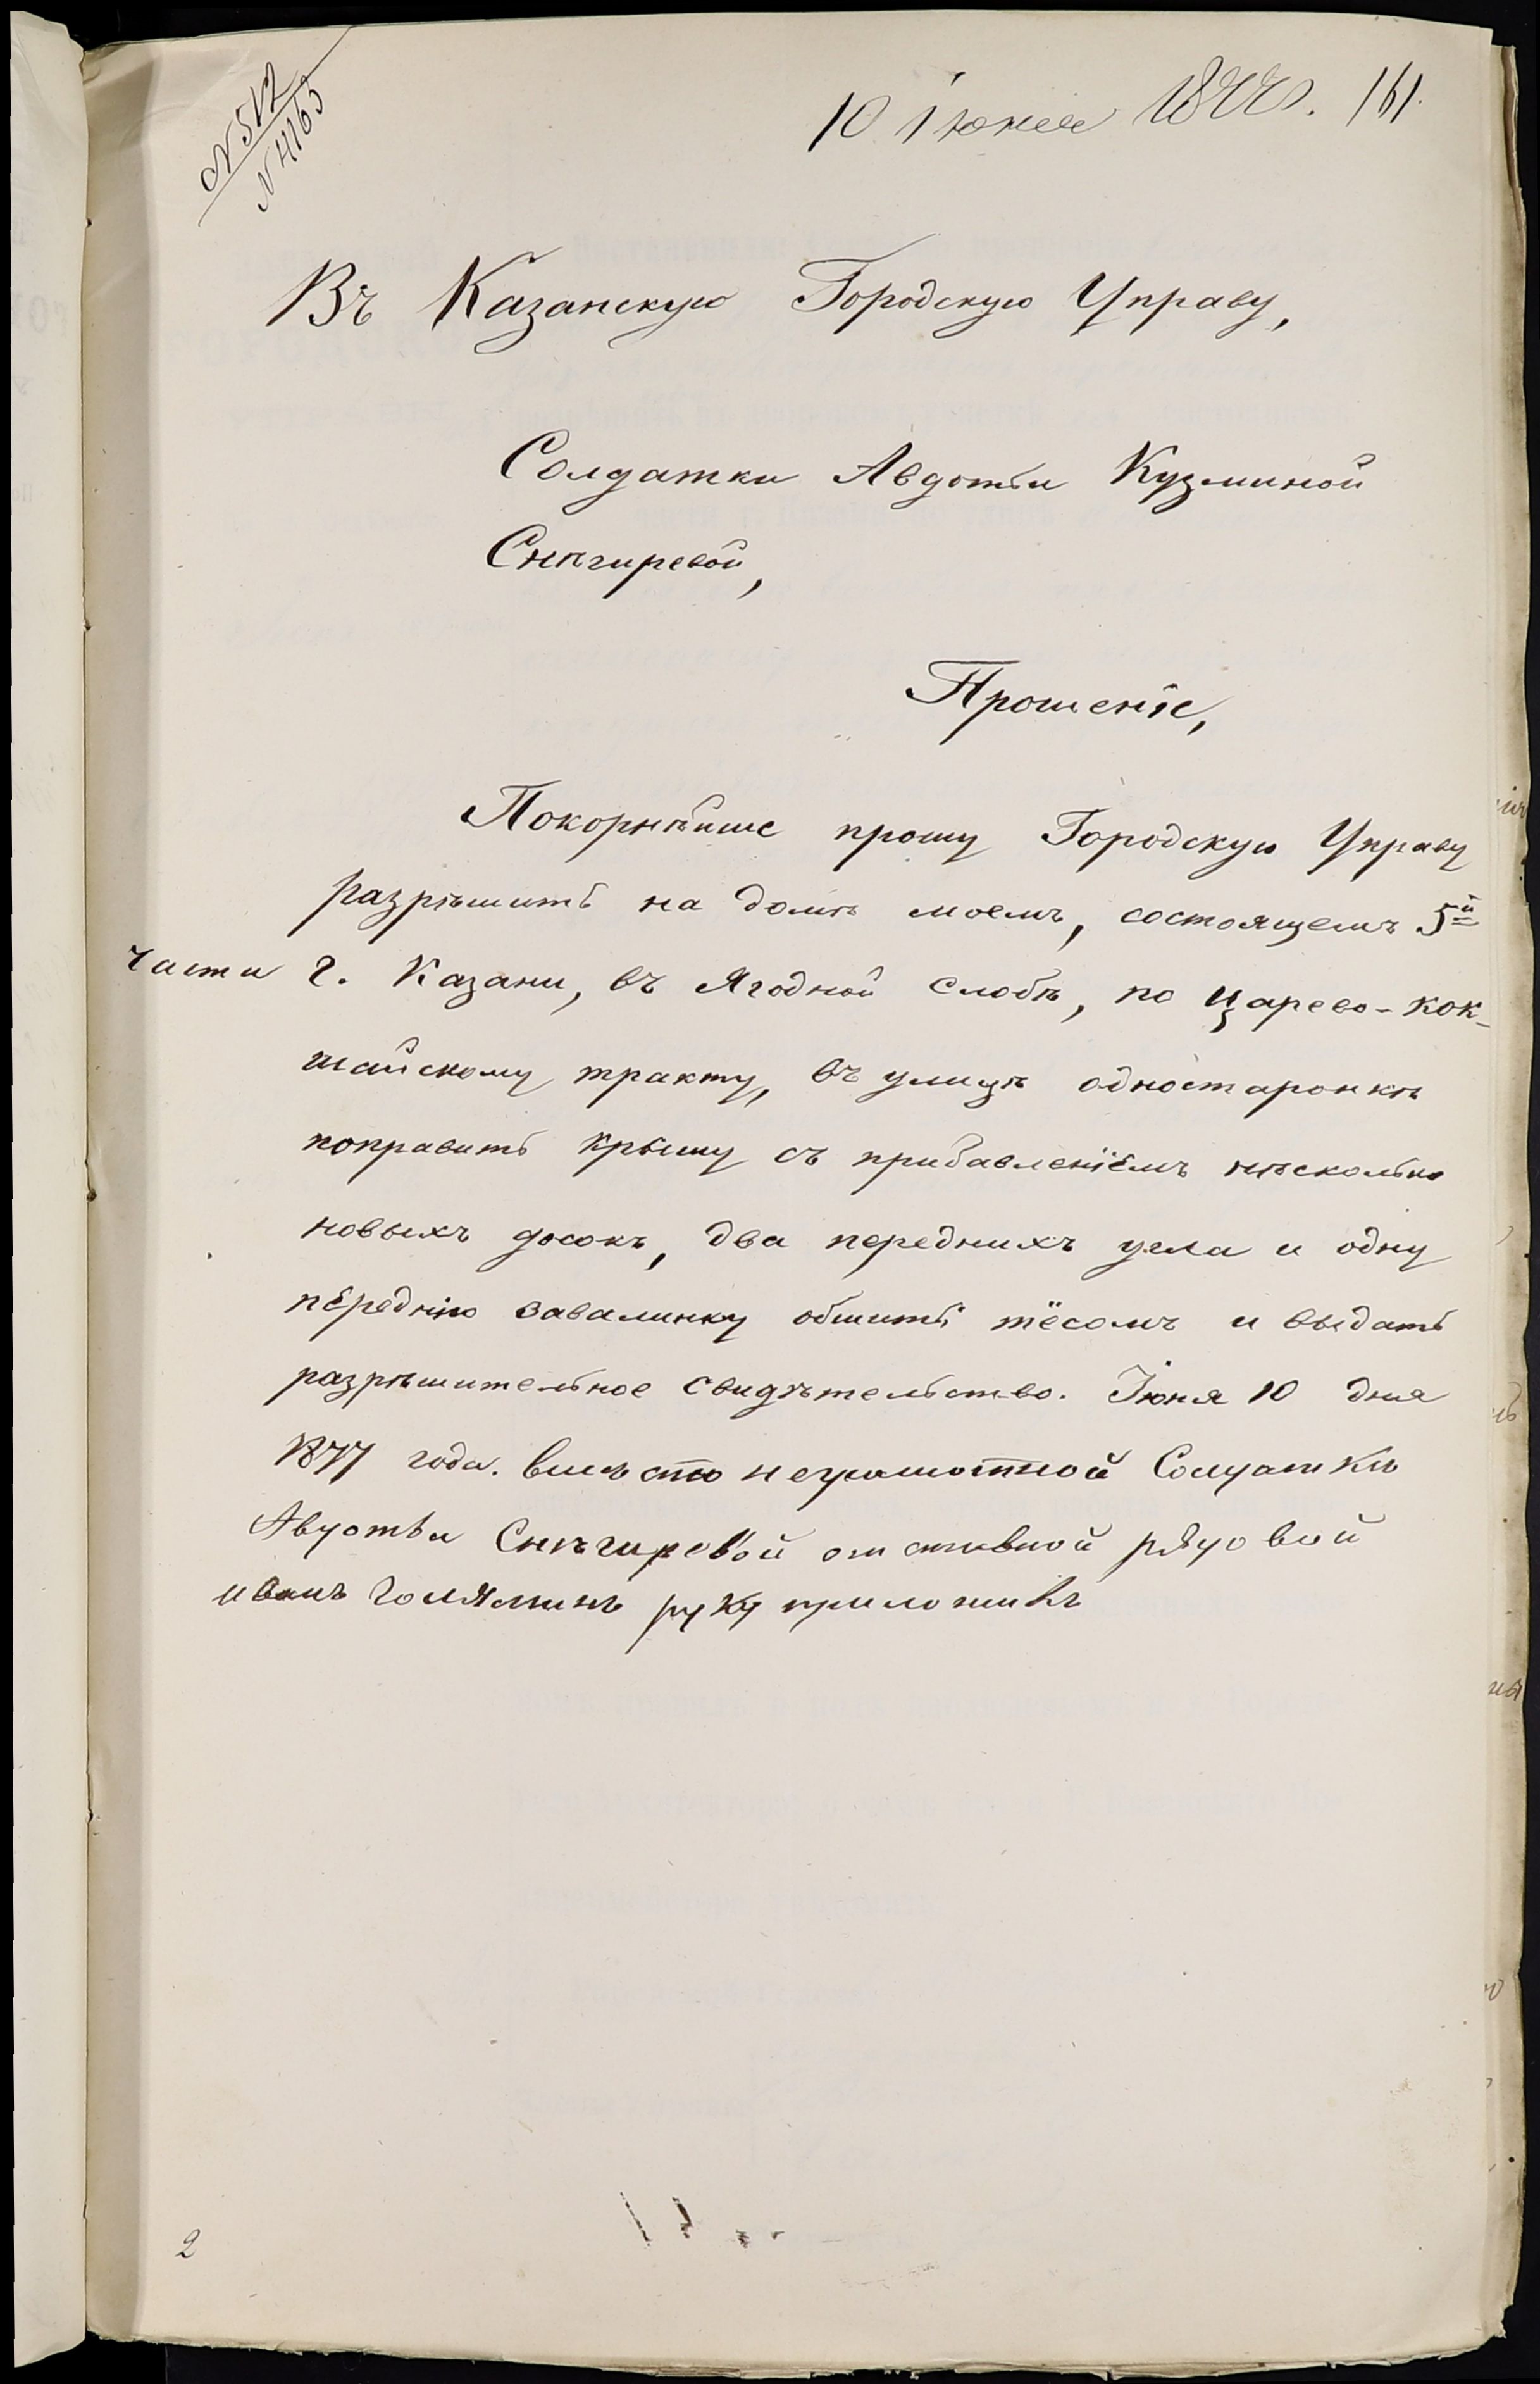 № 512
№ 4163
10 Iюня 1877 г. 161.
Въ Казанскую Городскую Управу,
Солдатки Авдотьи Кузминой
Снѣгиревой,
Прошеніе,
Покорнѣйше прошу Городскую Управу
разрѣшить на домѣ моемъ, состоящемъ 5й
части г. Казани, въ Ягодной слобѣ, по Царево-кок-
шайскому тракту, въ улицѣ одностаронкѣ
поправить крышу съ прибавленіемъ нѣсколько
новыхъ досокъ, два переднихъ угла и одну
переднію завалинку обшить тёсомъ и выдать
разрѣшительное свидѣтельство. Iюня 10 дня
1877 года. вмѣсто неграмотной Солдаткѣ
Авдотьи Снѣгиревой отставной рядовой
иванъ голямин руку приложилъ
2